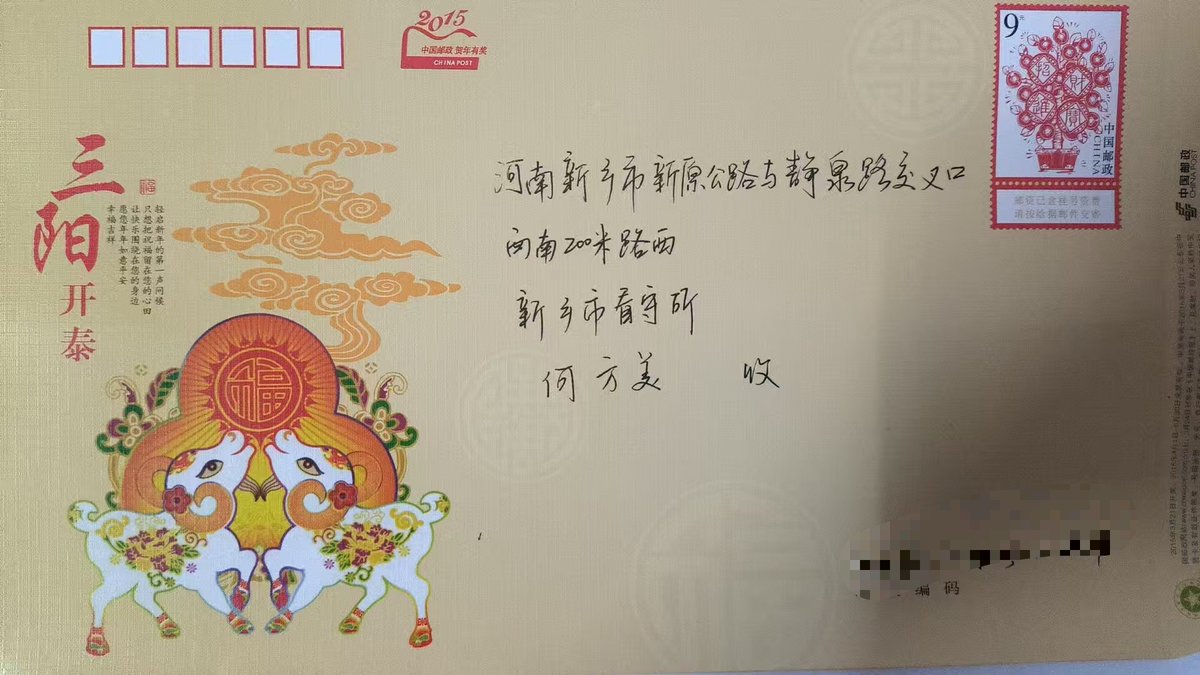 2015
中国邮政 贺年有奖
CHINA POST
9元
招财
进宝
中国邮政
CHINA
邮资已含挂号资费
请按给据邮件交寄
中国邮政
CHINA POST
三阳开泰
福
轻启新年的第一声问候
只想把祝福留在您的心田
让快乐围绕在您的身边
愿您年年如意平安
幸福吉祥
福
河南新乡市新原公路与静泉路交叉口
向南200米路西
新乡市看守所
何方美 收
编码